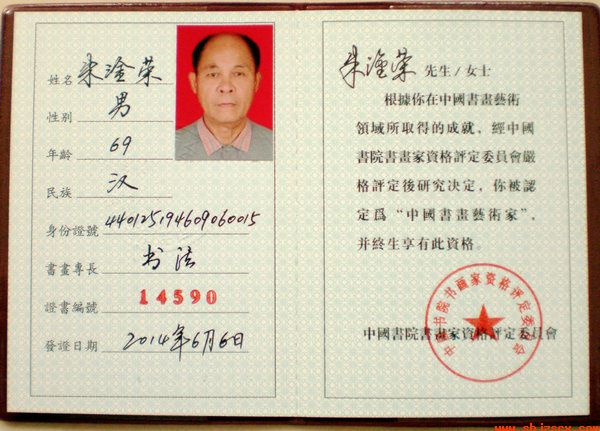 姓名 朱淦荣
性别 男
年龄 69
民族 汉
身份證號 440125194609060015
書畫專長 书法
證書編號 14590
發證日期 2014年6月6日
朱淦荣 先生/女士
根據你在中國書畫藝術
領域所取得的成就，經中國
書院書畫家資格評定委員會嚴
格評定後研究決定，你被認
定爲“中國書畫藝術家”，
并终生享有此資格。
中國書院書畫家資格評定委員會
中国书院书画家资格评定委员会